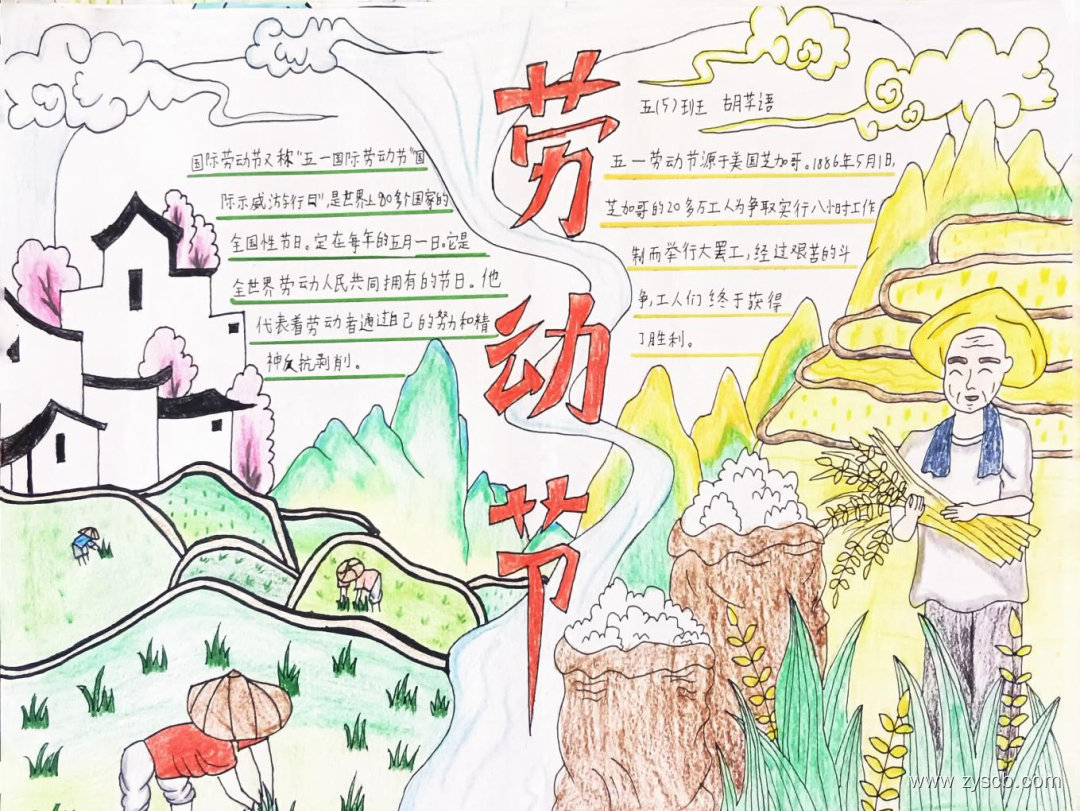 劳动节
国际劳动节又称“五一国际劳动节”国
际示威游行日”,是世界上80多个国家的
全国性节日。定在每年的五月一日。它是
全世界劳动人民共同拥有的节日。他
代表着劳动者通过自己的努力和精
神反抗剥削。
五(5)班 胡苹语
五一劳动节源于美国芝加哥。1886年5月1日,
芝加哥的20多万工人为争取实行八小时工作
制而举行大罢工,经过艰苦的斗
争,工人们终于获得
了胜利。
www.zyscb.com